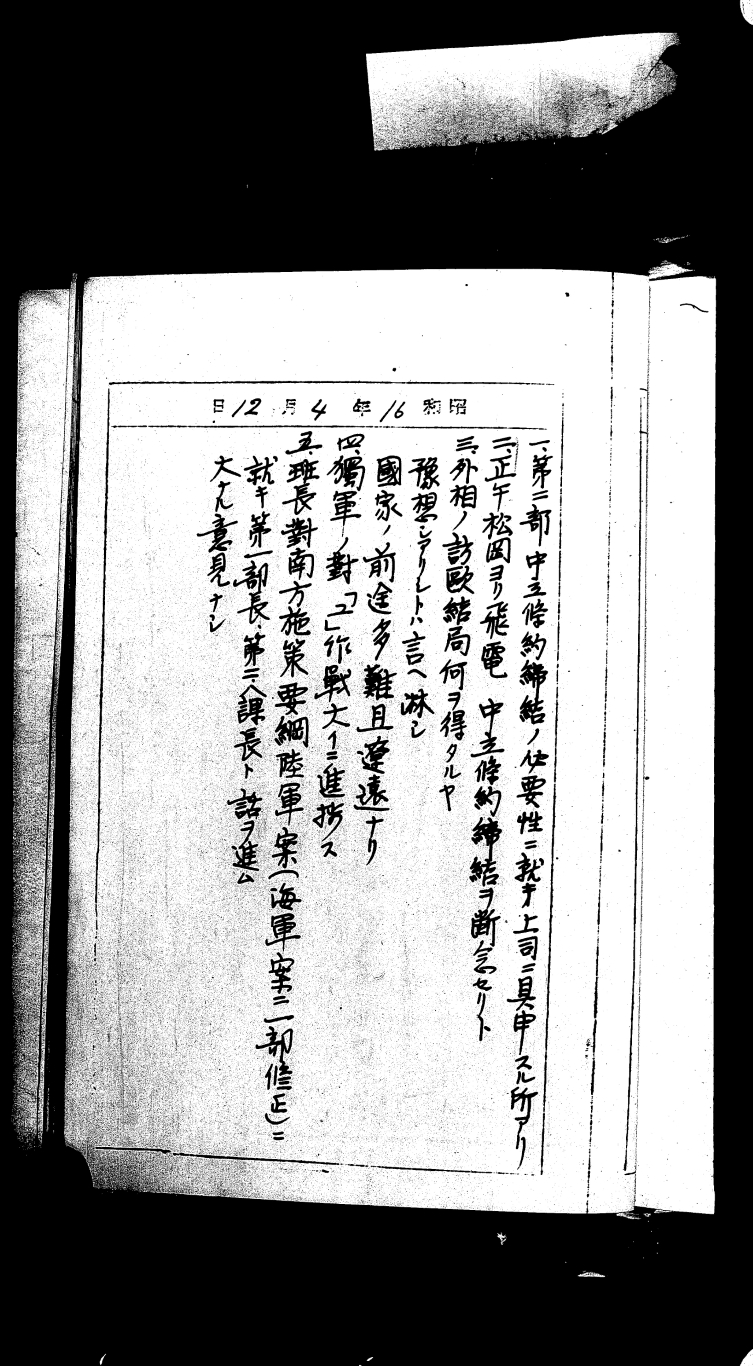 昭和16年4月12日
一、第二部 中立條約締結ノ必要性ニ就キ上司ニ具申スル所アリ
二、正午松岡ヨリ飛電 中立條約締結ヲ断念セリト
三、外相ノ訪歐結局何ヲ得タルヤ
豫想シアリシトハ言ヘ淋シ
國家ノ前途多難且遼遠ナリ
四、獨軍ノ對「ユ」作戰大イニ進捗ス
五、班長對南方施策要綱陸軍案(海軍案ニ一部修正)ニ
就キ第一部長、第二、八課長ト話ヲ進ム
大ナル意見ナシ